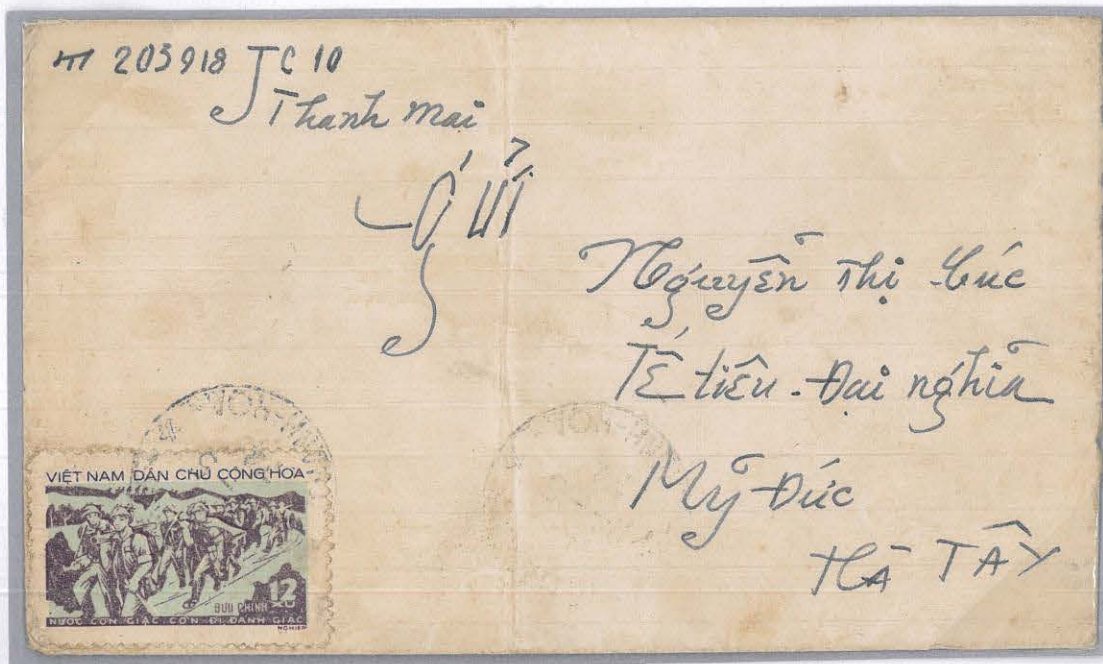 HT 203918 JC 10
Thanh Mai
Gửi
Nguyễn Thị Cúc
Tế tiêu - Đại nghĩa
Mỹ Đức
HÀ TÂY
VIỆT NAM DÂN CHỦ CỘNG HÒA
12
XU
BƯU CHÍNH
NƯỚC CÒN GIẶC CÒN ĐI ĐÁNH GIẶC
NGHIỆP